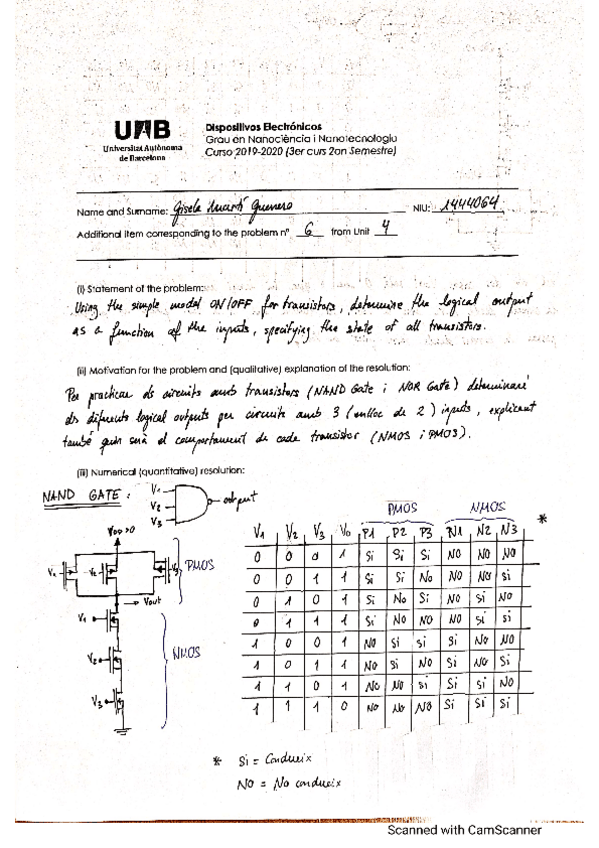 UAB
Universitat Autònoma
de Barcelona
Dispositivos Electrónicos
Grau en Nanociència i Nanotecnologia
Curso 2019-2020 (3er curs 2on Semestre)
Name and Surname: Gisela Martí Guerrero NIU: 1444064
Additional item corresponding to the problem nº 6 from Unit 4
(i) Statement of the problem:
Using the simple model ON/OFF for transistors, determine the logical output
as a function of the inputs, specifying the state of all transistors.
(ii) Motivation for the problem and (qualitative) explanation of the resolution:
Per practicar els circuits amb transistors (NAND Gate i NOR Gate) determinaré
els diferents logical outputs per circuits amb 3 (enlloc de 2) inputs, explicant
també quin serà el comportament de cada transistor (NMOS i PMOS).
(iii) Numerical (quantitative) resolution:
NAND GATE: V1 V2 V3 output
VDD>0
V1 V2 V3 PMOS
Vout
V1
V2 NMOS
V3
PMOS NMOS *
V1 V2 V3 V0 P1 P2 P3 N1 N2 N3
0 0 0 1 Si Si Si NO NO NO
0 0 1 1 Si Si No NO NO Si
0 1 0 1 Si No Si NO Si NO
0 1 1 1 Si NO NO NO si si
1 0 0 1 NO Si si Si NO NO
1 0 1 1 NO si NO Si NO Si
1 1 0 1 NO NO si Si Si NO
1 1 1 0 NO NO NO Si Si Si
* Si = Condueix
NO = No condueix
Scanned with CamScanner